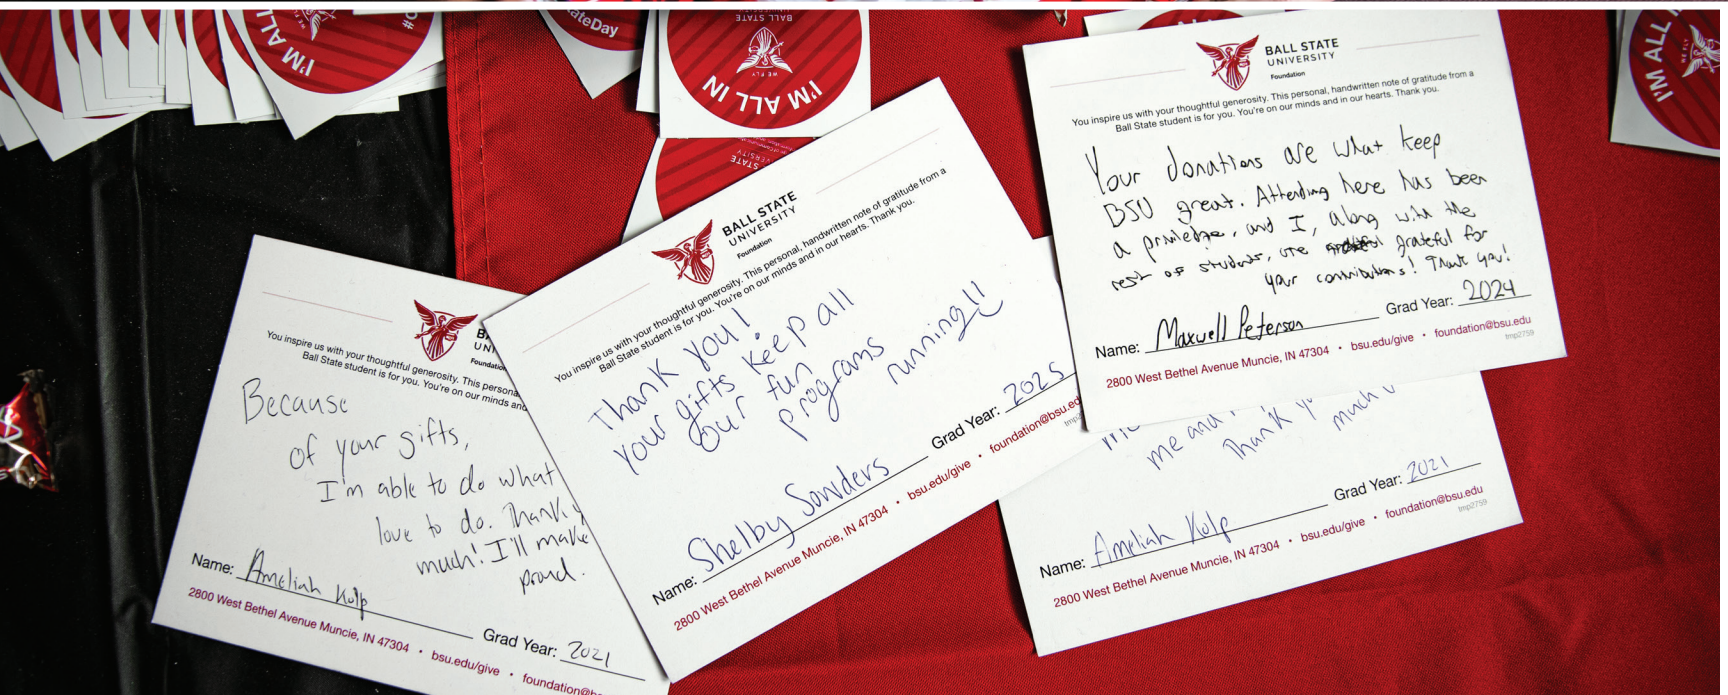 I'M ALL IN
#O
ateDay
BALL STATE
WE FLY
I'M ALL IN
STATE
VERSITY
I'M ALL I
WE FLY
You inspire us with your thoughtful generosity. This persona
Ball State student is for you. You're on our minds and
Foundation
Because
of your gifts,
I'm able to do what
love to do. Thank y
much! I'll make
proud.
Name: Ameliah Kulp
Grad Year: 2021
2800 West Bethel Avenue Muncie, IN 47304 • bsu.edu/give • foundation@b
BALL STATE
UNIVERSITY
Foundation
You inspire us with your thoughtful generosity. This personal, handwritten note of gratitude from a
Ball State student is for you. You're on our minds and in our hearts. Thank you.
Thank you!
your gifts keep all
our fun
programs
running!!
Name: Shelby Sowders
Grad Year: 2025
2800 West Bethel Avenue Muncie, IN 47304 • bsu.edu/give • foundation@bsu.ed
BALL STATE
UNIVERSITY
Foundation
You inspire us with your thoughtful generosity. This personal, handwritten note of gratitude from a
Ball State student is for you. You're on our minds and in our hearts. Thank you.
Your donations are what keep
BSU great. Attending here has been
a privledge, and I, along with the
rest of students, are grateful for
your contributions! Thank you!
Name: Maxwell Peterson
Grad Year: 2024
2800 West Bethel Avenue Muncie, IN 47304 • bsu.edu/give • foundation@bsu.edu
tmp2759
me and
Thank y
much
Name: Ameliah Kulp
Grad Year: 2021
2800 West Bethel Avenue Muncie, IN 47304 • bsu.edu/give • foundation@bsu.edu
tmp2759